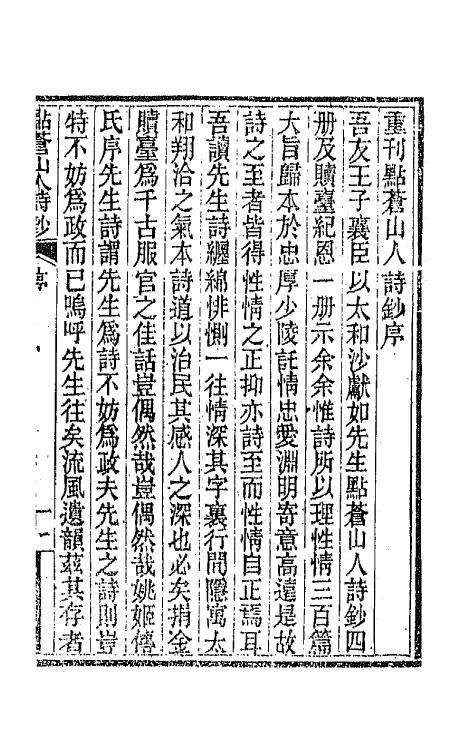 重刊點蒼山人詩鈔序
吾友王子襄臣以太和沙獻如先生點蒼山人詩鈔四
册及贖臺紀恩一册示余余惟詩所以理性情三百篇
大旨歸本於忠厚少陵託情忠愛淵明寄意高遠是故
詩之至者皆得性情之正抑亦詩至而性情自正焉耳
吾讀先生詩纏綿悱惻一往情深其字裏行間隱寓太
和翔洽之氣本詩道以治民其感人之深也必矣捐金
贖臺爲千古服官之佳話豈偶然哉豈偶然哉姚姬傳
氏序先生詩謂先生爲詩不妨爲政夫先生之詩則豈
特不妨爲政而已嗚呼先生往矣流風遺韻茲其存者
點蒼山人詩鈔 序 一